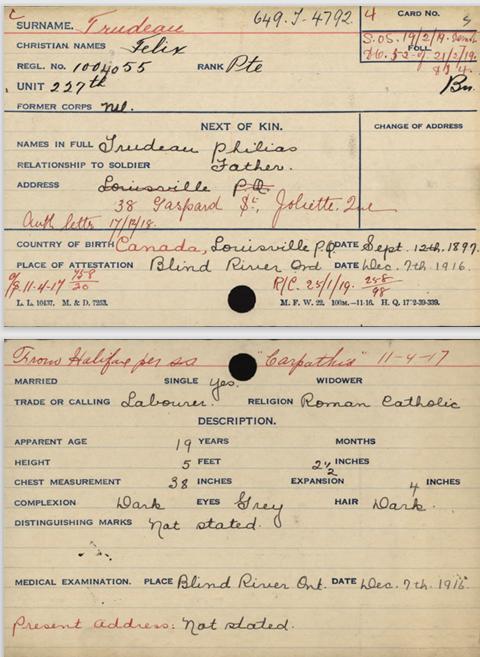 C 649.T-4792. 4 CARD NO. S
SURNAME. Trudeau
S.O.S. 19/2/19. Demob
FOLL.
CHRISTIAN NAMES Felix
REGL. NO. 1004055 RANK Pte
UNIT 227th Bn.
FORMER CORPS nil.
NEXT OF KIN. CHANGE OF ADDRESS
NAMES IN FULL Trudeau Philias
RELATIONSHIP TO SOLDIER Father.
ADDRESS Louisville P.Q.
38 Gaspard St, Joliette, Que
Auth letter 17/12/18.
COUNTRY OF BIRTH Canada, Louisville P.Q. DATE Sept. 12th. 1897.
PLACE OF ATTESTATION Blind River Ont DATE Dec. 7th. 1916.
11-4-17 758/20 R/C. 25/1/19. 258/98
L. L. 10437. M. & D. 7253. M. F. W. 22. 100M.—11-16. H. Q. 1772-39-339.
From Halifax per ss "Carpathia" 11-4-17
MARRIED SINGLE yes. WIDOWER
TRADE OR CALLING Labourer. RELIGION Roman Catholic
DESCRIPTION.
APPARENT AGE 19 YEARS MONTHS
HEIGHT 5 FEET 2½ INCHES
CHEST MEASUREMENT 38 INCHES EXPANSION 4 INCHES
COMPLEXION Dark EYES Grey HAIR Dark.
DISTINGUISHING MARKS Not stated.
MEDICAL EXAMINATION. PLACE Blind River Ont. DATE Dec. 7th. 1916
Present Address: Not stated.